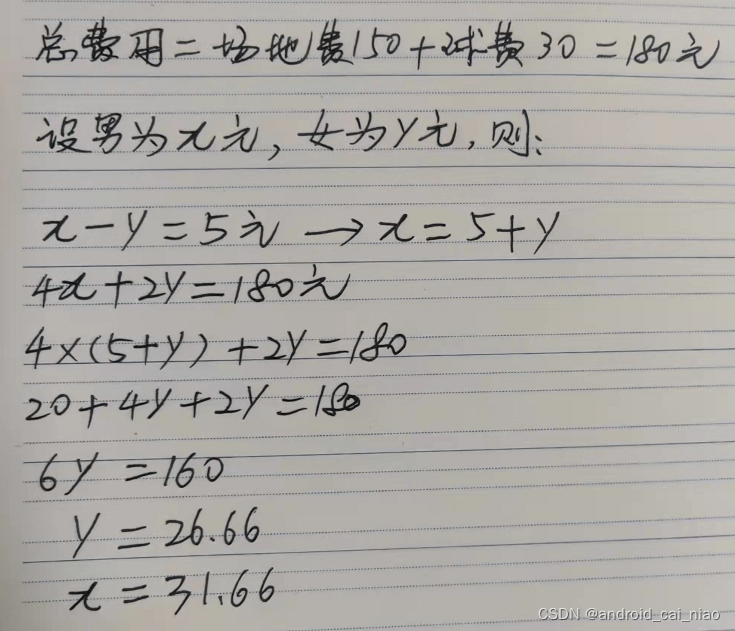 总费用=场地费150+球费30=180元
设男为x元,女为y元,则:
x-y=5元→x=5+y
4x+2y=180元
4×(5+y)+2y=180
20+4y+2y=180
6y=160
y=26.66
x=31.66
CSDN @android_cai_niao